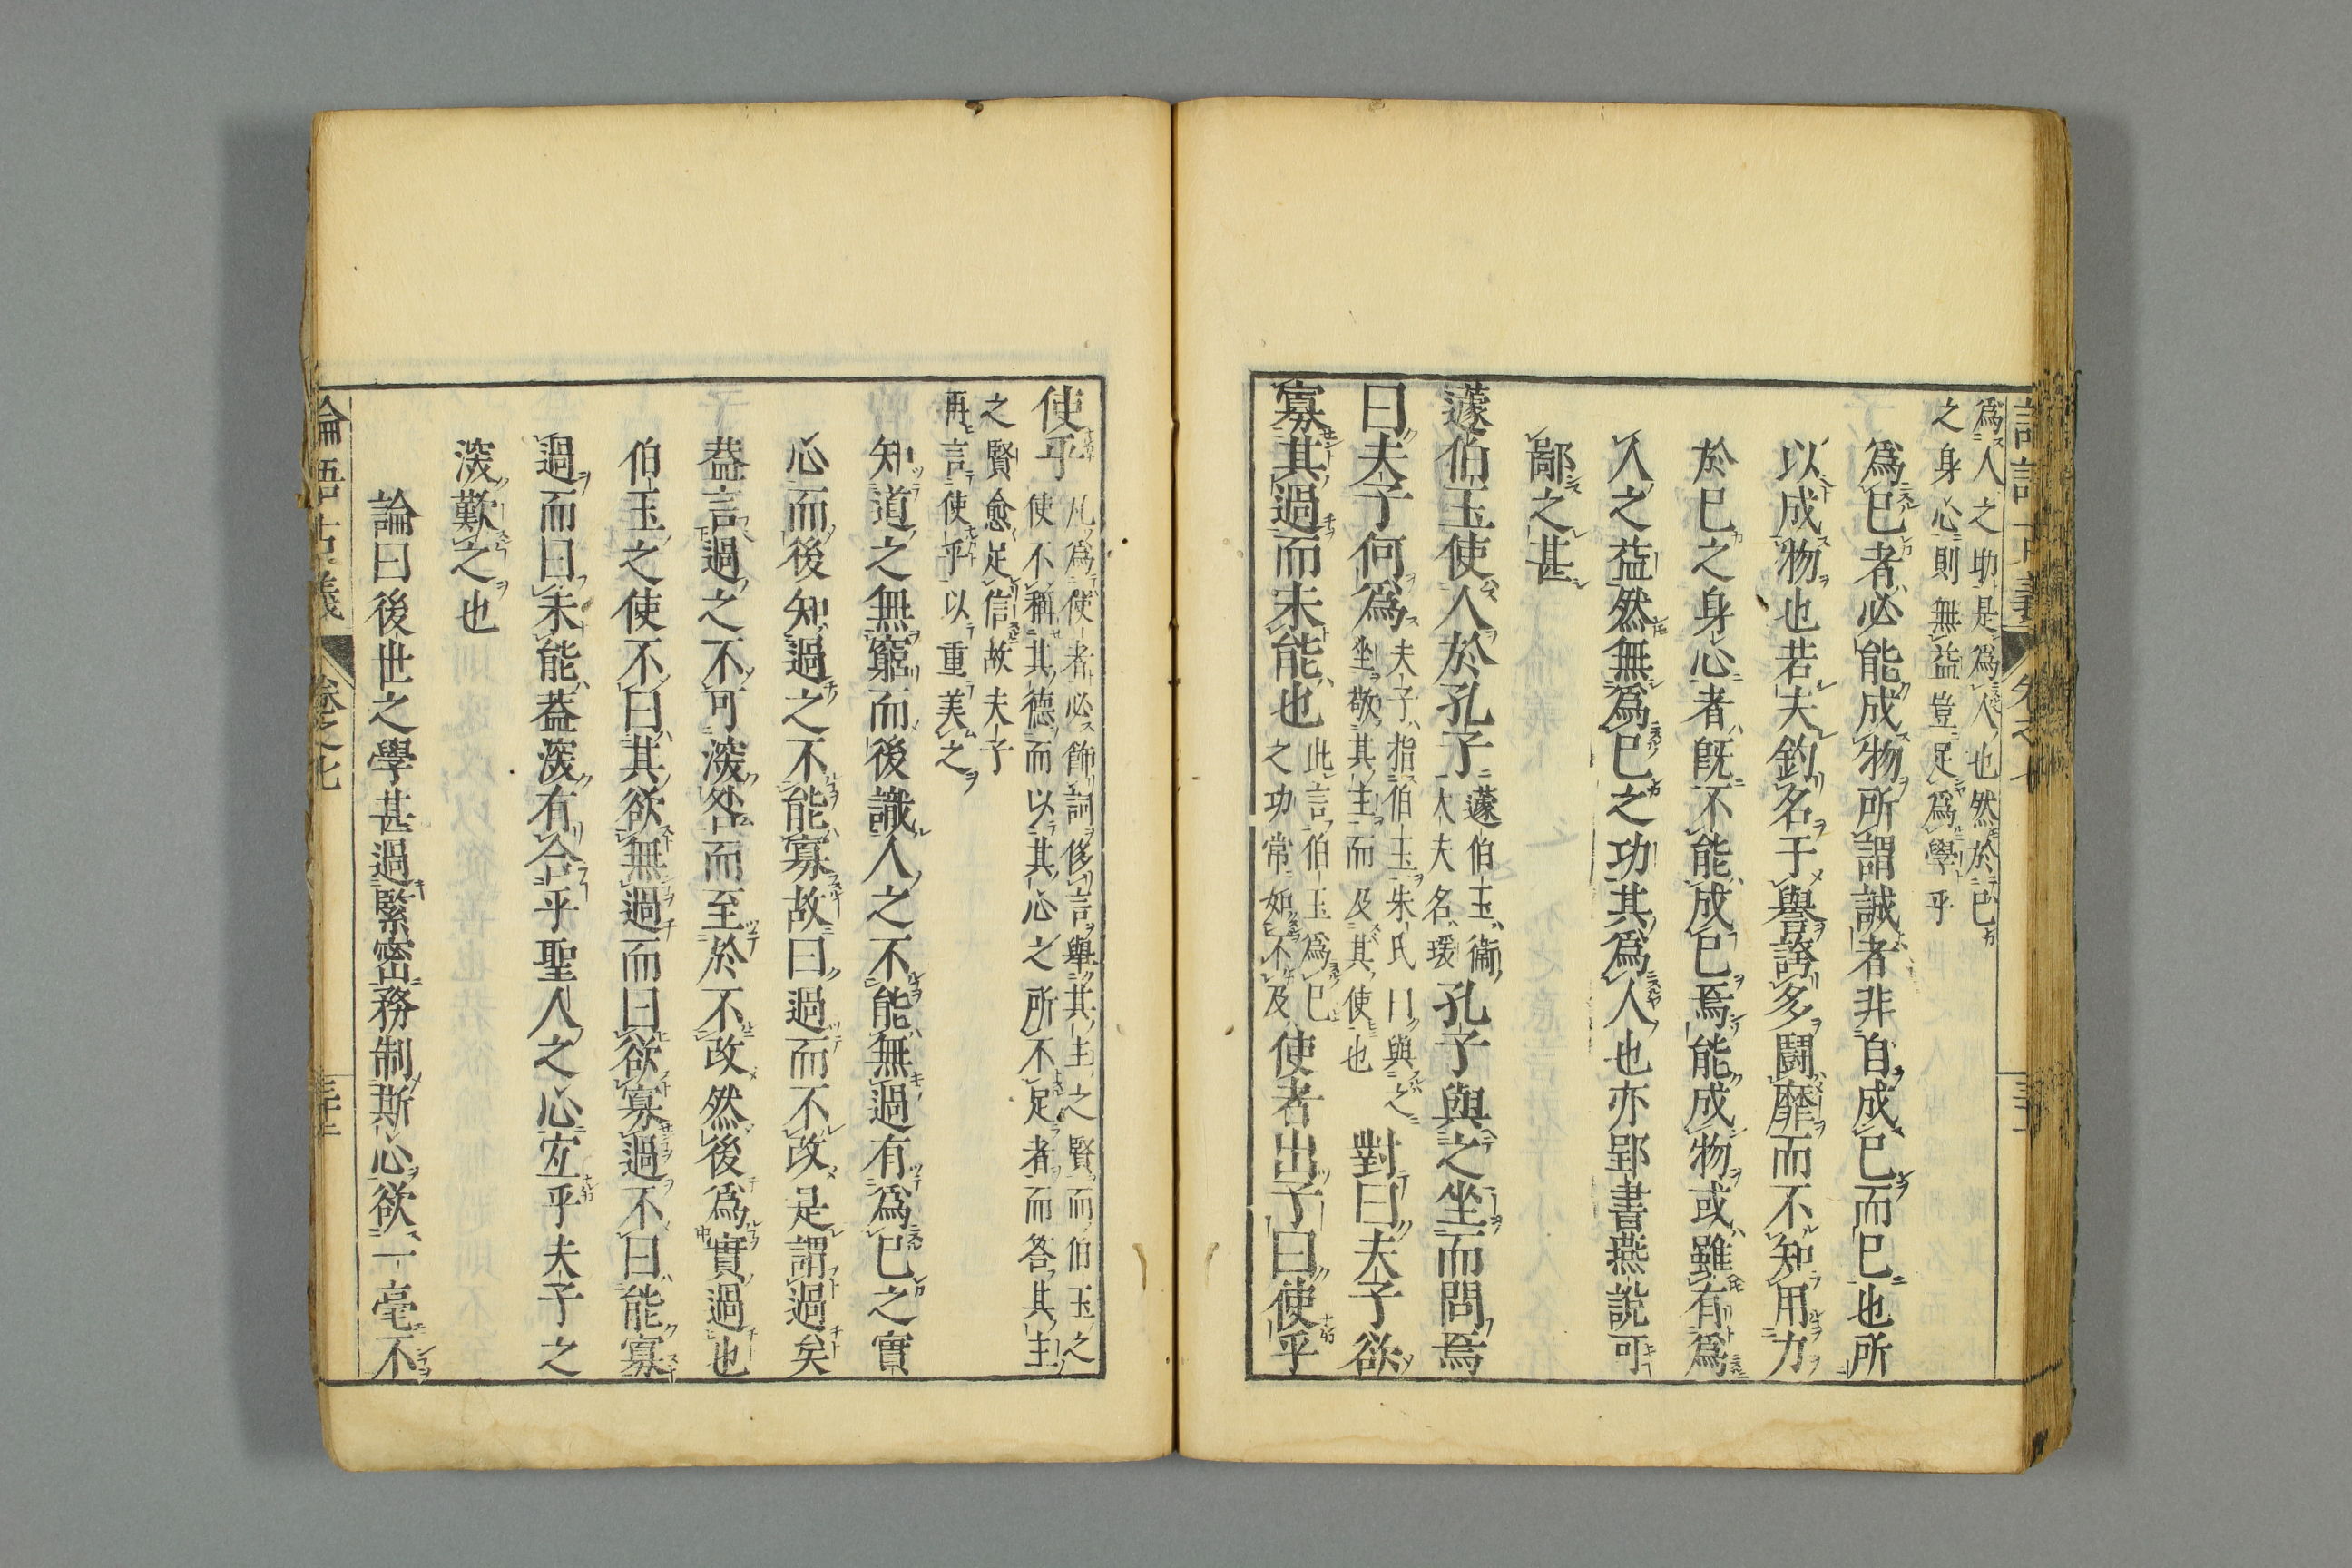 爲人之助是爲人也然於已
之身心則無益豈足爲學乎
爲已者必能成物所謂誠者非自成已而已也所
以成物也若夫釣名于譽誇多鬪靡而不知用力
於已之身心者旣不能成已焉能成物或雖有爲
人之益然無爲已之功其爲人也亦郢書燕說可
鄙之甚
蘧伯玉使人於孔子
蘧伯玉衞
大夫名瑗
孔子與之坐而問焉
曰夫子何爲
夫子指伯玉朱氏曰與之
坐敬其主而及其使也
對曰夫子欲
寡其過而未能也
此言伯玉爲已
之功常如不及
使者出子曰使乎
使乎
凡爲使者必飾詞侈言輿其主之賢而伯玉之
使不稱其德而以其心之所不足者而答其主
之賢愈足信故夫子
再言使乎以重美之
知道之無窮而後識人之不能無過有爲已之實
心而後知過之不能寡故曰過而不改是謂過矣
葢言過之不可深咎而至於不改然後爲實過也
伯玉之使不曰其欲無過而曰欲寡過不曰能寡
過而曰未能葢深有合乎聖人之心宜乎夫子之
深歎之也
論曰後世之學甚過緊密務制斯心欲一毫不
論語古義 卷之七 三十二